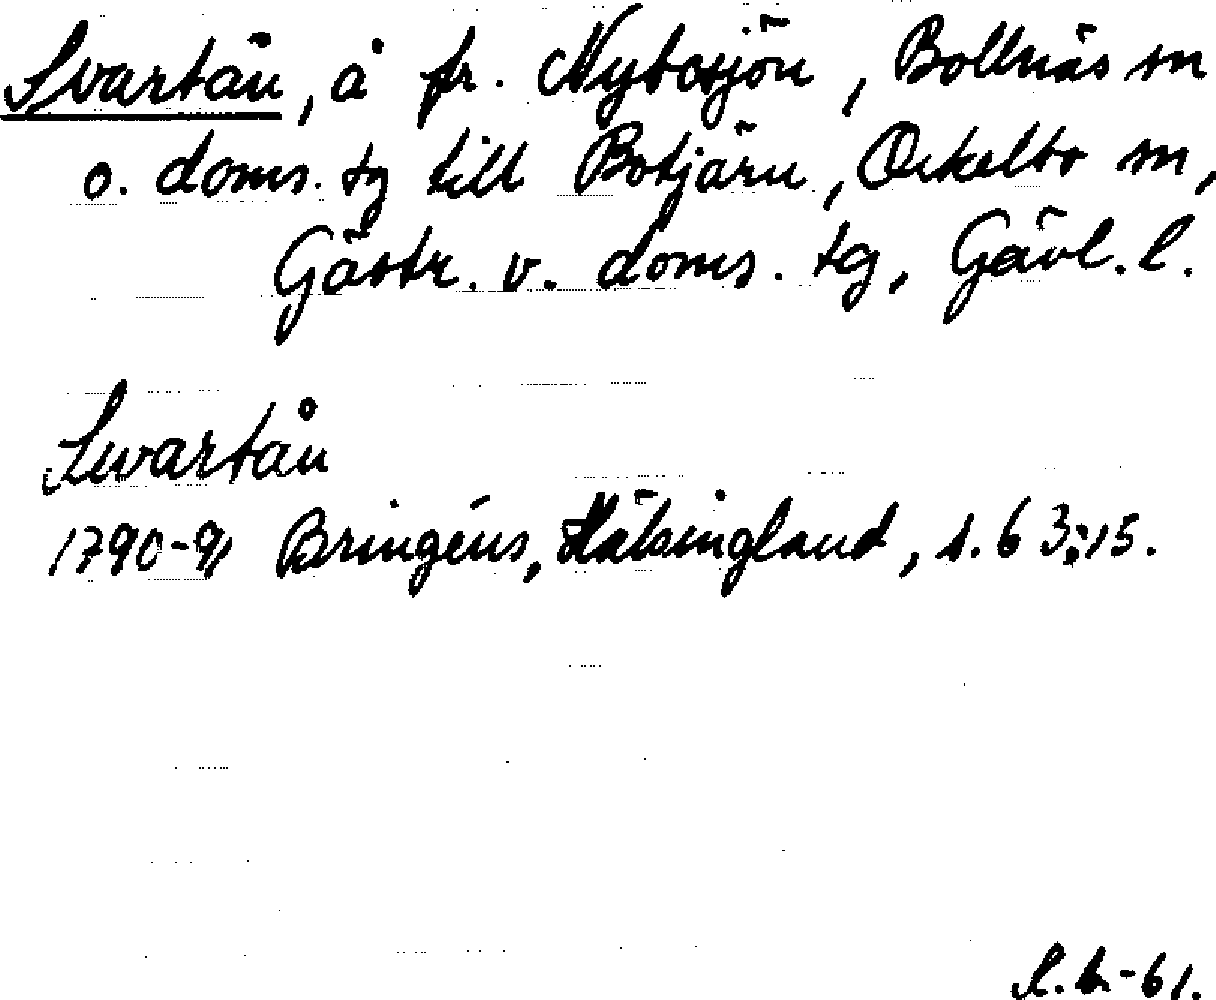 Svartån, å fr. Nybosjön, Bollnäs sn
o. doms. tg till Botjärn, Ockelbo sn,
Gästr. v. doms. tg, Gävl. l.
Swartån
1790-91 Bringéus, Hälsingland, s. 63:15.
-61.